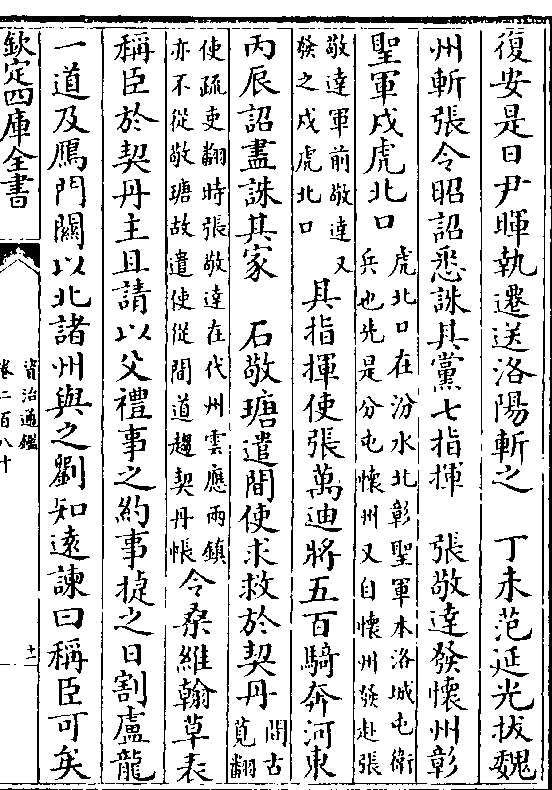 復安是日尹暉執遷送洛陽斬之　丁未范延光拔魏
州斬張令昭詔悉誅其黨七指揮　張敬達發懷州彰
聖軍戍虎北口虎北口在汾水北彰聖軍本洛城屯衛
兵也先是分屯懷州又自懷州發赴張
敬達軍前敬達又
發之戍虎北口
其指揮使張萬迪將五百騎奔河東
丙辰詔盡誅其家　石敬瑭遣間使求救於契丹間古
莧翻
使疏吏翻時張敬達在代州雲應兩鎮
亦不從敬瑭故遣使從間道趨契丹帳
令桑維翰草表
稱臣於契丹主且請以父禮事之約事捷之日割盧龍
一道及鴈門關以北諸州與之劉知遠諫曰稱臣可矣
欽定四庫全書
資治通鑑
卷二百八十
十二